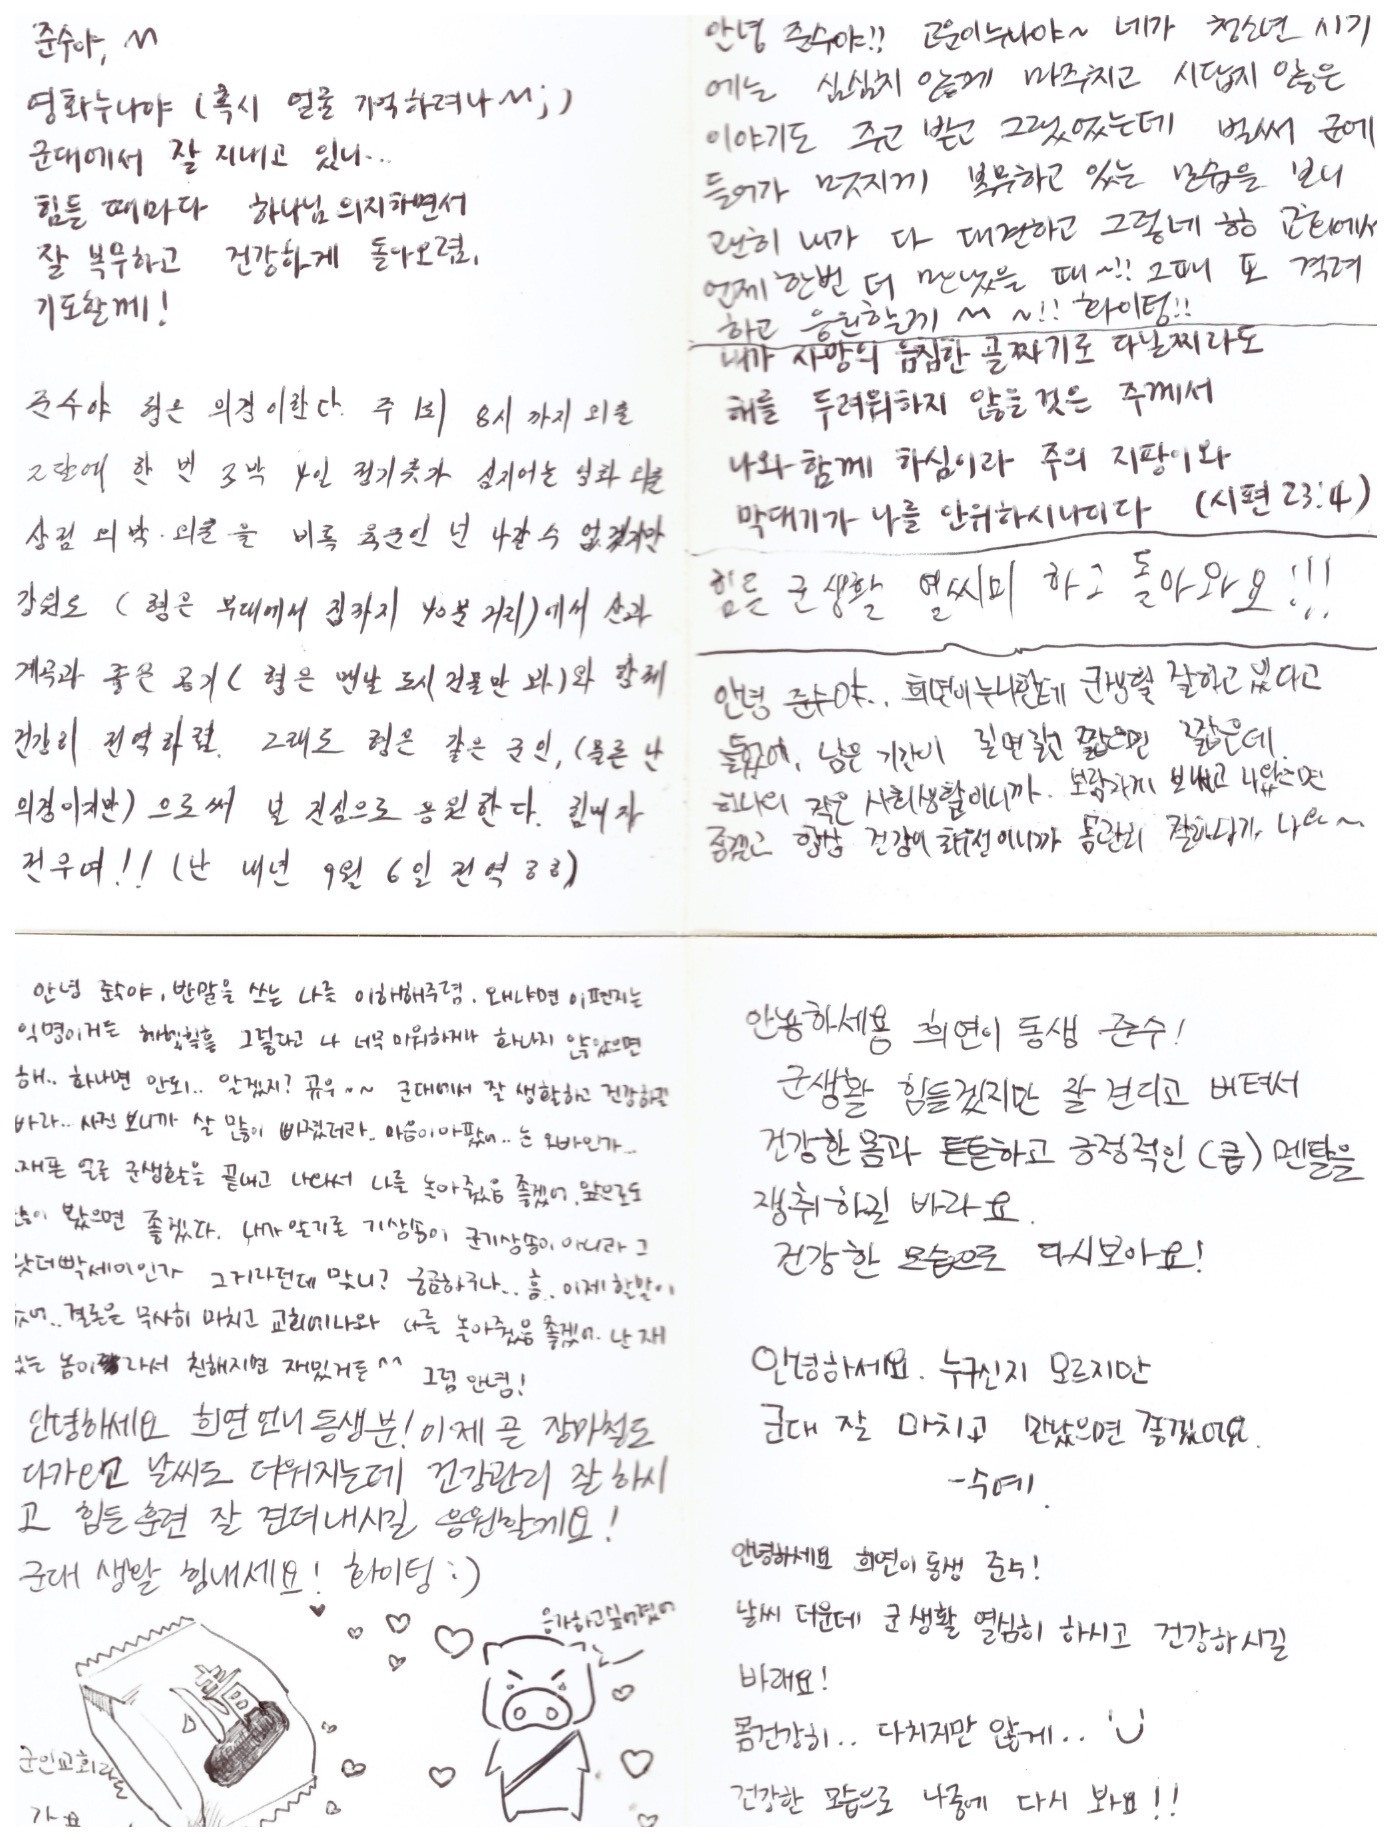 준수야, ^^
영화누나야 (혹시 얼굴 기억하려나 ^^;)
군대에서 잘 지내고 있니...
힘들 때마다 하나님 의지하면서
잘 복무하고 건강하게 돌아오렴.
기도할께!
준수야 형은 의경이란다. 주 1회 8시 까지 외출
2달에 한 번 3박 4일 정기휴가 심지어는 영화 외출
외박·외출을 비록 육군인 넌 나갈 수 없겠지만
강원도 (형은 부대에서 집까지 40분 거리)에서 산과
계곡과 좋은 공기 (형은 맨날 도시 건물만 봐)와 함께
건강히 전역하렴. 그래도 형은 같은 군인, (물론 난
의경이지만) 으로써 널 진심으로 응원한다. 힘내자
전우여!! (난 내년 9월 6일 전역 ㅎㅎ)
안녕 준수야!! 고운이누나야~ 네가 청소년 시기
에는 심심치 않게 마주치고 시답지 않은
이야기도 주고 받고 그랬었는데 벌써 군에
들어가 멋지게 복무하고 있는 모습을 보니
괜히 내가 다 대견하고 그렇네 ㅎㅎ 교회에서
언제 한번 더 만났을 때~!! 그때 또 격려
하고 응원할께 ^^ ~!! 화이팅!!
내가 사망의 음침한 골짜기로 다닐찌라도
해를 두려워하지 않을 것은 주께서
나와 함께 하심이라 주의 지팡이와
막대기가 나를 안위하시나이다 (시편 23:4)
힘든 군생활 열씨미 하고 돌아와요!!!
안녕 준수야.. 희연이누나한테 군생활 잘하고 있다고
들었어, 남은 기간이 길면길고 짧으면 짧은데
하나의 작은 사회생활이니까. 보람차게 보내고 나왔으면
좋겠고 항상 건강이 최우선이니까 몸관리 잘하다가, 나와~
안녕 준수야, 반말을 쓰는 나를 이해해주렴. 왜냐면 이 편지는
익명이거든 헤헿힉흫 그렇다고 나 너무 미워하거나 화나지 않았으면
해.. 화나면 안돼.. 알겠지? 뀨우~~ 군대에서 잘 생활하고 건강하길
바라.. 사진 보니까 살 많이 빠졌더라.. 마음이 아팠어.. 눈 오바인가...
군생활을 끝내고 나와서 나를 놀아줬음 좋겠어. 앞으로도
봤으면 좋겠다. 내가 알기로 기상송이 군기상송이 아니라 그
그거라던데 맞니? 궁금하구나.. 흠.. 이제 할말이
결론은 무사히 마치고 교회에 나와 나를 놀아줬음 좋겠어. 난 재
있는 놈이라서 친해지면 재밌거든 ^^ 그럼 안녕!
안녕하세요 희연언니 동생분! 이제 곧 장마철도
다가오고 날씨도 더워지는데 건강관리 잘 하시
고 힘든 훈련 잘 견뎌내시길 응원할게요!
군대 생활 힘내세요! 화이팅 :)
응가하고싶어졌어
군인교회라도
가요
안뇽하세용 희연이 동생 준수!
군생활 힘들겠지만 잘 견디고 버텨서
건강한 몸과 튼튼하고 긍정적인 (굳) 멘탈을
쟁취하길 바라요.
건강한 모습으로 다시보아요!
안녕하세요. 누구신지 모르지만
군대 잘 마치고 만났으면 좋겠어요.
-수예.
안녕하세요 희연이 동생 준수!
날씨 더운데 군생활 열심히 하시고 건강하시길
바래요!
몸건강히.. 다치지만 않게..
건강한 모습으로 나중에 다시 봐요!!